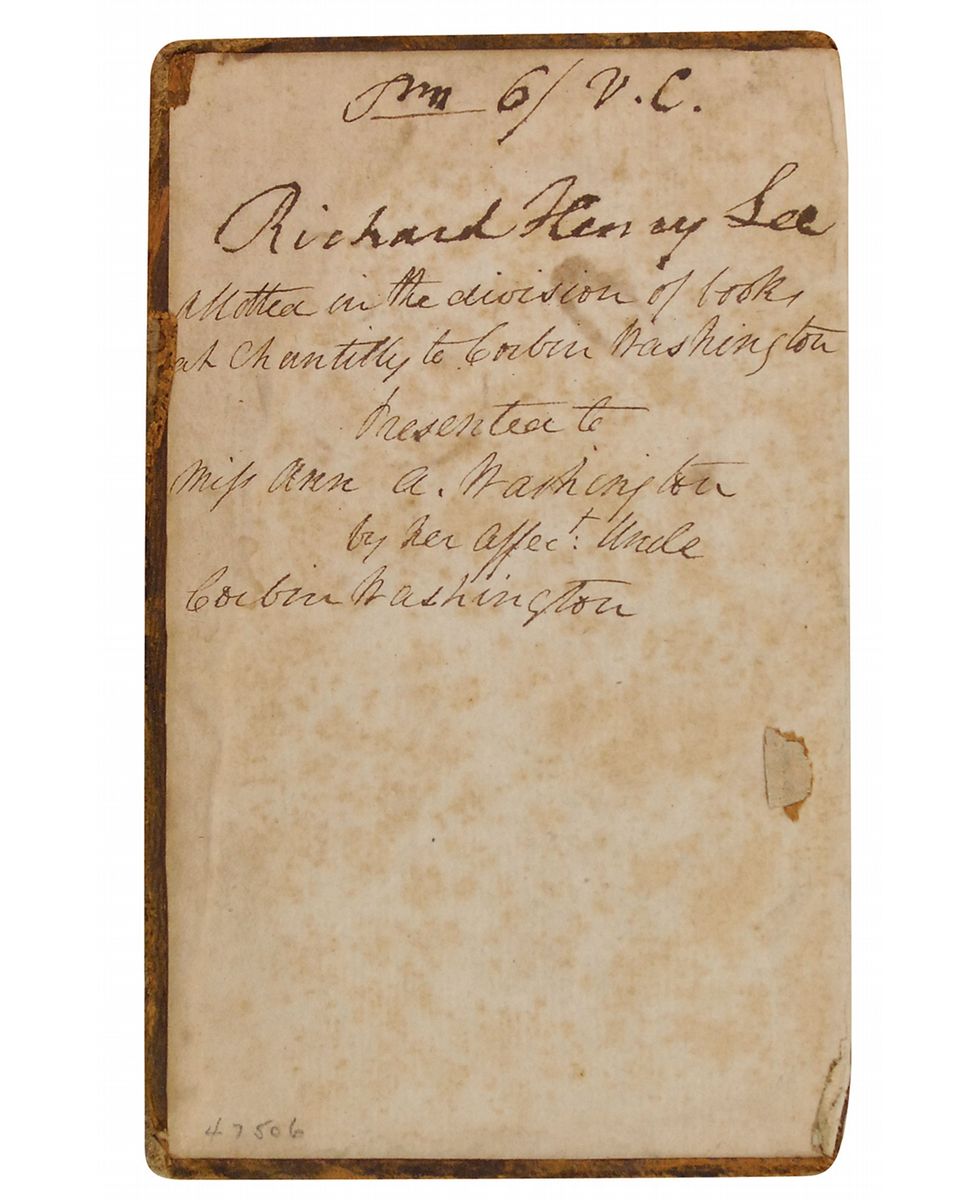 6/ V. C.
Richard Henry Lee
Allotted in the division of books
at Chantilly to Corbin Washington
Presented to
Miss Ann A. Washington
by her affect: Uncle
Corbin Washington
47506